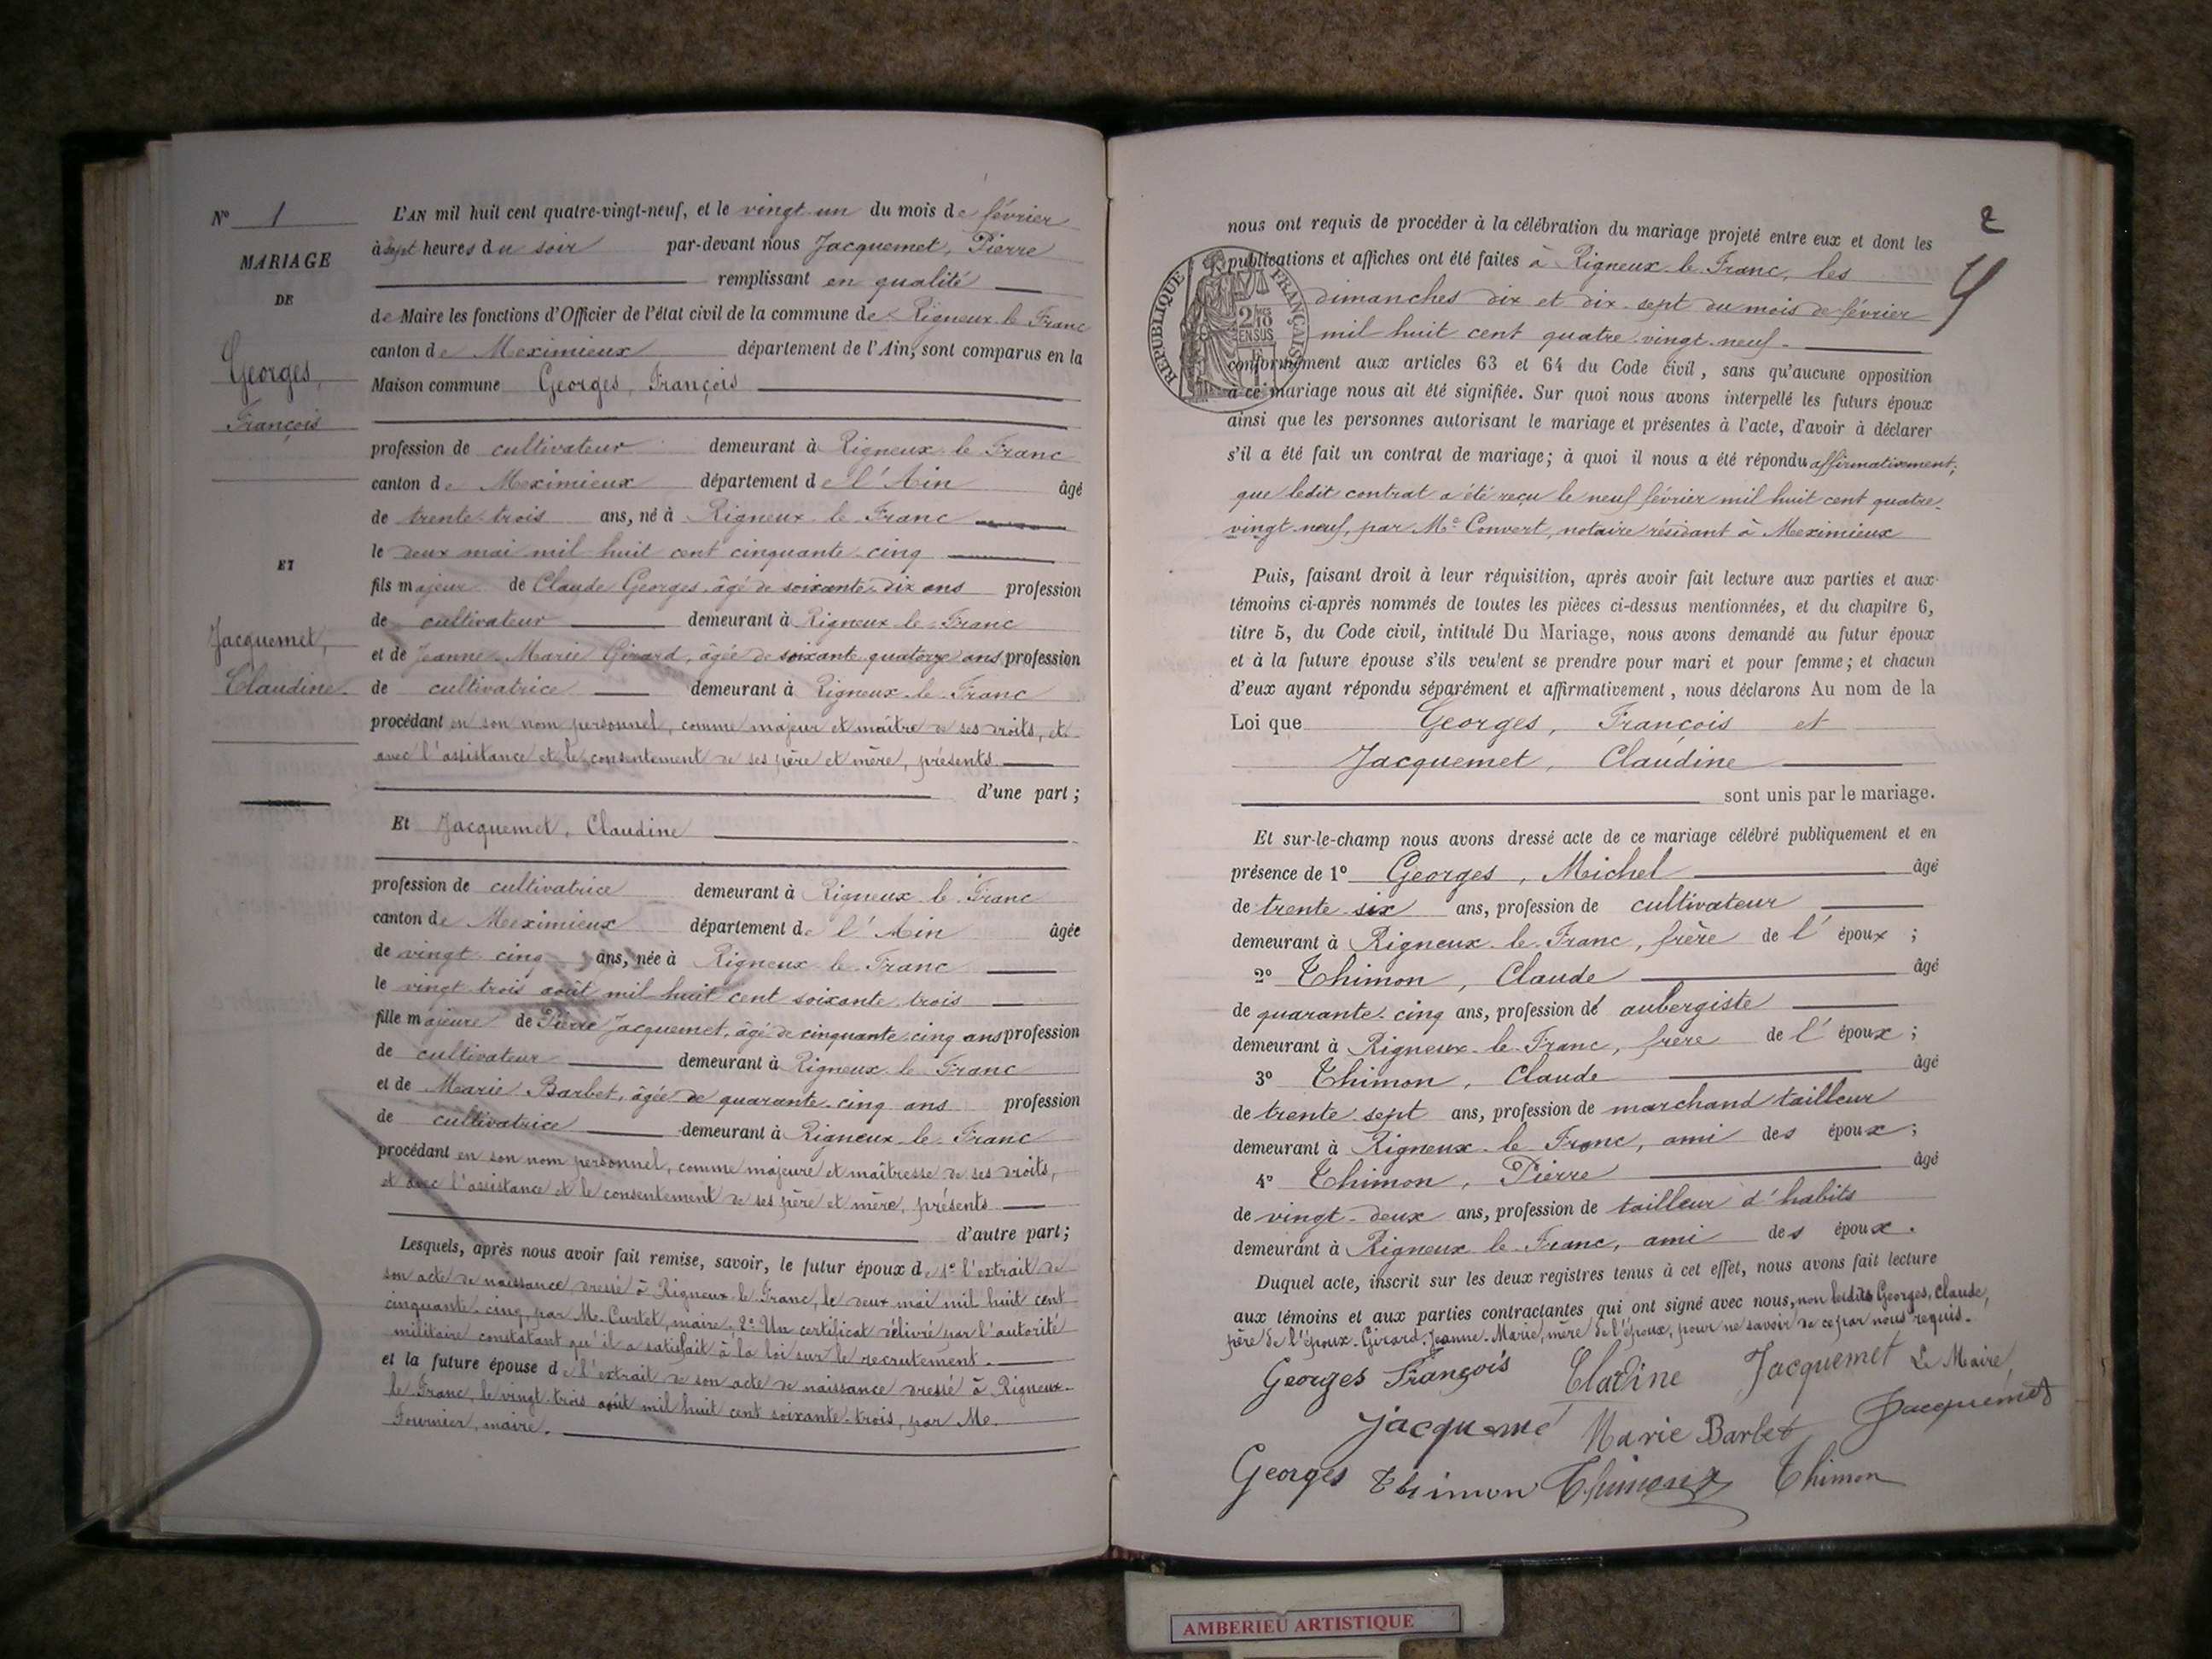 Nº 1
MARIAGE
DE
Georges,
François
ET
Jacquemet,
Claudine.
L'AN mil huit cent quatre-vingt-neuf, et le vingt-un du mois de février
à sept heures du soir par-devant nous Jacquemet, Pierre
remplissant en qualité
de Maire les fonctions d'Officier de l'état civil de la commune de Rigneux-le-Franc
canton de Meximieux département de l'Ain, sont comparus en la
Maison commune Georges, François
profession de cultivateur demeurant à Rigneux-le-Franc
canton de Meximieux département de l'Ain âgé
de trente-trois ans, né à Rigneux-le-Franc
le deux mai mil huit cent cinquante-cinq
fils majeur de Claude Georges, âgé de soixante-dix ans profession
de cultivateur demeurant à Rigneux-le-Franc
et de Jeanne-Marie Girard, âgée de soixante-quatorze ans profession
de cultivatrice demeurant à Rigneux-le-Franc
procédant en son nom personnel, comme majeur et maître de ses droits, et
avec l'assistance et le consentement de ses père et mère, présents
d'une part;
Et Jacquemet, Claudine
profession de cultivatrice demeurant à Rigneux-le-Franc
canton de Meximieux département de l'Ain âgée
de vingt-cinq ans, née à Rigneux-le-Franc
le vingt-trois août mil huit cent soixante-trois
fille majeure de Pierre Jacquemet, âgé de cinquante-cinq ans profession
de cultivateur demeurant à Rigneux-le-Franc
et de Marie Barbet, âgée de quarante-cinq ans profession
de cultivatrice demeurant à Rigneux-le-Franc
procédant en son nom personnel, comme majeure et maîtresse de ses droits,
et avec l'assistance et le consentement de ses père et mère, présents
d'autre part;
Lesquels, après nous avoir fait remise, savoir, le futur époux de 1º l'extrait de
son acte de naissance dressé à Rigneux-le-Franc, le deux mai mil huit cent
cinquante-cinq, par M. Curtet, maire; 2º Un certificat délivré par l'autorité
militaire constatant qu'il a satisfait à la loi sur le recrutement.
et la future épouse de l'extrait de son acte de naissance dressé à Rigneux-
le-Franc, le vingt-trois août mil huit cent soixante-trois, par Me.
Fournier, maire.
2
nous ont requis de procéder à la célébration du mariage projeté entre eux et dont les
publications et affiches ont été faites à Rigneux-le-Franc, les
dimanches dix et dix-sept du mois de février
mil huit cent quatre-vingt-neuf.
RÉPUBLIQUE FRANÇAISE
2/10 EN SUS
conformément aux articles 63 et 64 du Code civil, sans qu'aucune opposition
à ce mariage nous ait été signifiée. Sur quoi nous avons interpellé les futurs époux
ainsi que les personnes autorisant le mariage et présentes à l'acte, d'avoir à déclarer
s'il a été fait un contrat de mariage; à quoi il nous a été répondu affirmativement;
que ledit contrat a été reçu le neuf février mil huit cent quatre-
vingt-neuf, par Me Convert, notaire résidant à Meximieux
Puis, faisant droit à leur réquisition, après avoir fait lecture aux parties et aux
témoins ci-après nommés de toutes les pièces ci-dessus mentionnées, et du chapitre 6,
titre 5, du Code civil, intitulé Du Mariage, nous avons demandé au futur époux
et à la future épouse s'ils veulent se prendre pour mari et pour femme; et chacun
d'eux ayant répondu séparément et affirmativement, nous déclarons Au nom de la
Loi que Georges, François et
Jacquemet, Claudine
sont unis par le mariage.
Et sur-le-champ nous avons dressé acte de ce mariage célébré publiquement et en
présence de 1º Georges, Michel âgé
de trente-six ans, profession de cultivateur
demeurant à Rigneux-le-Franc, frère de l'époux;
2º Thimon, Claude âgé
de quarante-cinq ans, profession de aubergiste
demeurant à Rigneux-le-Franc, frère de l'époux;
3º Thimon, Claude âgé
de trente-sept ans, profession de marchand tailleur
demeurant à Rigneux-le-Franc, ami des époux;
4º Thimon, Pierre âgé
de vingt-deux ans, profession de tailleur d'habits
demeurant à Rigneux-le-Franc, ami des époux.
Duquel acte, inscrit sur les deux registres tenus à cet effet, nous avons fait lecture
aux témoins et aux parties contractantes qui ont signé avec nous, non lesdits Georges, Claude,
père de l'époux. Girard, Jeanne-Marie, mère de l'époux, pour ne savoir de ce par nous requis.
Georges François Cladine Jacquemet Le Maire,
Jacquemé Marie Barbet Jacquemet
Georges Thimon Thimon Thimon
AMBERIEU ARTISTIQUE